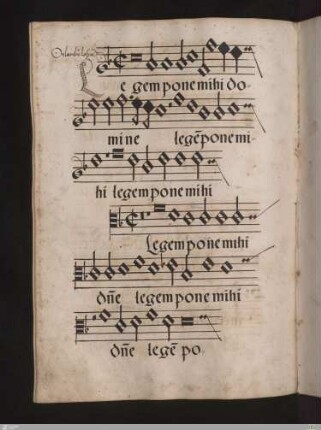 Orlandi Lassi
Legem pone mihi do-
mine legē pone mi-
hi legem pone mihi
Legem pone mihi
dn̄e legem pone mihi
dn̄e legē po